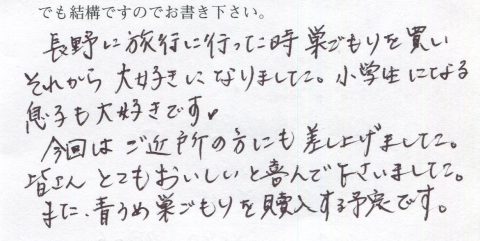 でも結構ですのでお書き下さい。
長野に旅行に行った時巣ごもりを買い
それから大好きになりました。小学生になる
息子も大好きです♥
今回はご近所の方にも差し上げました。
皆さんとてもおいしいと喜んで下さいました。
また、青うめ巣ごもりを購入する予定です。